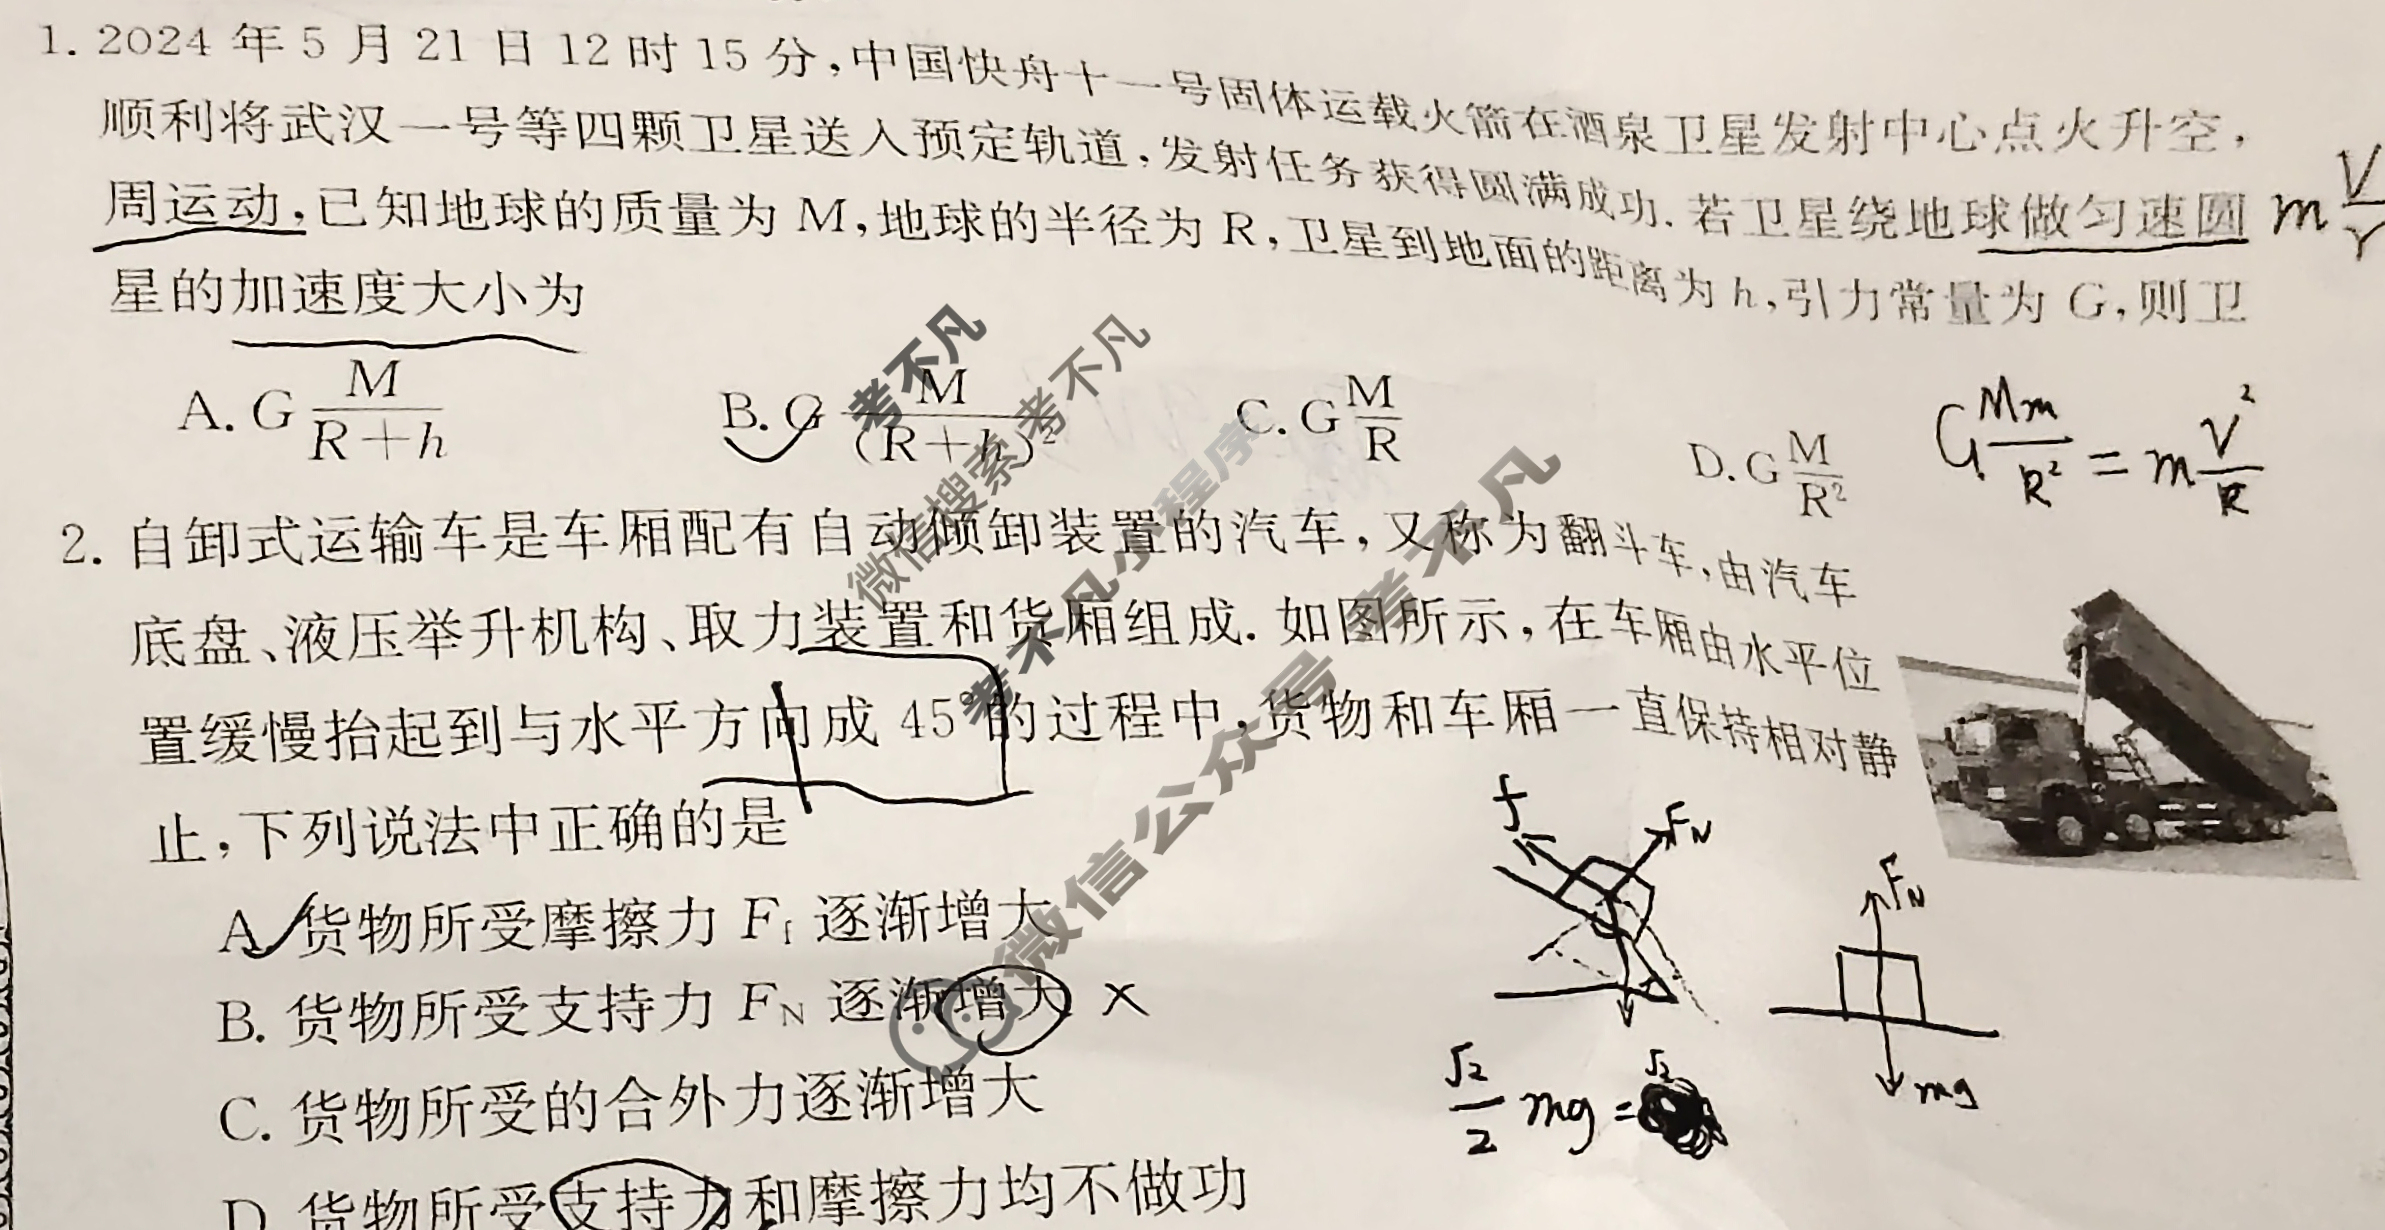 1. 2024 年 5 月 21 日 12 时 15 分,中国快舟十一号固体运载火箭在酒泉卫星发射中心点火升空,
顺利将武汉一号等四颗卫星送入预定轨道,发射任务获得圆满成功.若卫星绕地球做匀速圆
周运动,已知地球的质量为 M,地球的半径为 R,卫星到地面的距离为 h,引力常量为 G,则卫
星的加速度大小为
m V/r
A. G M/(R+h)
B. G M/(R+h)²
C. G M/R
D. G M/R²
G Mm/R² = m V²/R
2. 自卸式运输车是车厢配有自动倾卸装置的汽车,又称为翻斗车,由汽车
底盘、液压举升机构、取力装置和货厢组成.如图所示,在车厢由水平位
置缓慢抬起到与水平方向成 45°的过程中,货物和车厢一直保持相对静
止,下列说法中正确的是
A 货物所受摩擦力 Ff 逐渐增大
B. 货物所受支持力 FN 逐渐增大 ×
C. 货物所受的合外力逐渐增大
D 货物所受支持力和摩擦力均不做功
f
FN
FN
mg
√2/2 mg = √2
考不凡
微信搜索 考不凡
考不凡小程序
微信公众号 考不凡